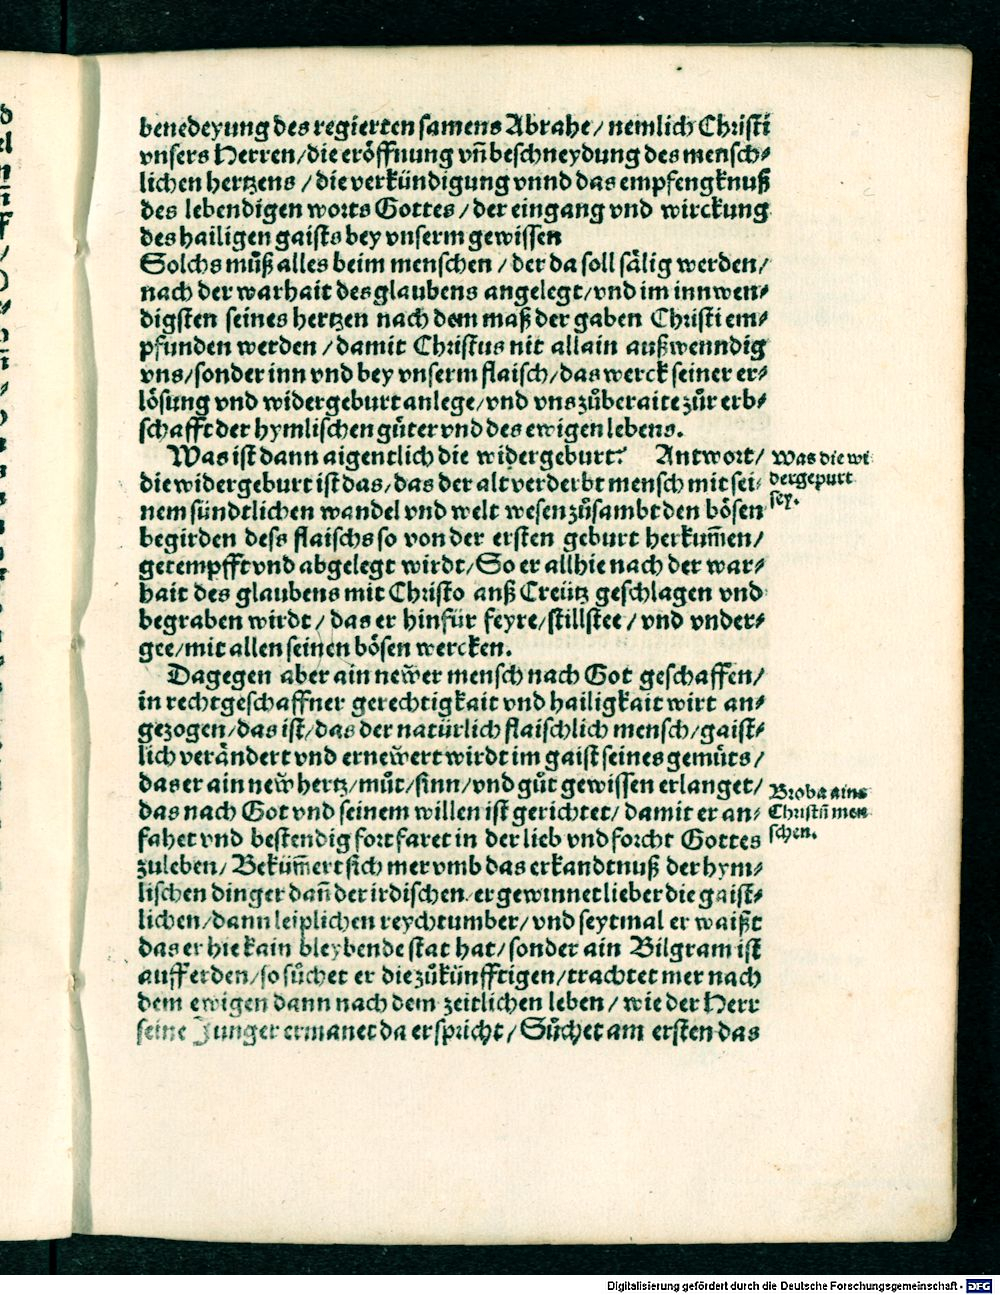 benedeyung des regierten samens Abrahe / nemlich Christi
vnsers Herren / die eröffnung vñ beschneydung des mensch⸗
lichen hertzens / die verkündigung vnnd das empfengknuß
des lebendigen worts Gottes / der eingang vnd wirckung
des hailigen gaists bey vnserm gewissen
Solchs můß alles beim menschen / der da soll sälig werden /
nach der warhait des glaubens angelegt / vnd im innwen⸗
digsten seines hertzen nach dem maß der gaben Christi em⸗
pfunden werden / damit Christus nit allain außwenndig
vns / sonder inn vnd bey vnserm flaisch / das werck seiner er⸗
lösung vnd widergeburt anlege / vnd vns zůberaite zůr erb⸗
schafft der hymlischen gůter vnd des ewigen lebens.
Was ist dann aigentlich die widergeburt? Antwort /
die widergeburt ist das / das der alt verderbt mensch mit sei⸗
nem sündtlichen wandel vnd welt wesen zůsambt den bösen
begirden dess flaischs so von der ersten geburt herkum̃en /
getempfft vnd abgelegt wirdt / So er allhie nach der war⸗
hait des glaubens mit Christo anß Creütz geschlagen vnd
begraben wirdt / das er hinfür feyre / stillstee / vnd vnder⸗
gee / mit allen seinen bösen wercken.
Was die wi⸗
dergepurt
sey.
Dagegen aber ain newer mensch nach Got geschaffen /
in rechtgeschaffner gerechtigkait vnd hailigkait wirt an⸗
gezogen / das ist / das der natürlich flaischlich mensch / gaist⸗
lich verändert vnd ernewert wirdt im gaist seines gemüts /
das er ain new hertz / můt / sinn / vnd gůt gewissen erlanget /
das nach Got vnd seinem willen ist gerichtet / damit er an⸗
fahet vnd bestendig fort faret in der lieb vnd forcht Gottes
zuleben / Beküm̃ert sich mer vmb das erkandtnuß der hym⸗
lischen dinger dañ der irdischen / er gewinnet lieber die gaist⸗
lichen / dann leiplichen reychtumber / vnd seytmal er waißt
das er hie kain bleybende stat hat / sonder ain Bilgram ist
auff erden / so sůchet er die zůkünfftigen / trachtet mer nach
dem ewigen dann nach dem zeitlichen leben / wie der Herr
seine Junger ermanet da er spricht / Sůchet am ersten das
Broba ains
Christñ men
schen.
Digitalisierung gefördert durch die Deutsche Forschungsgemeinschaft - DFG